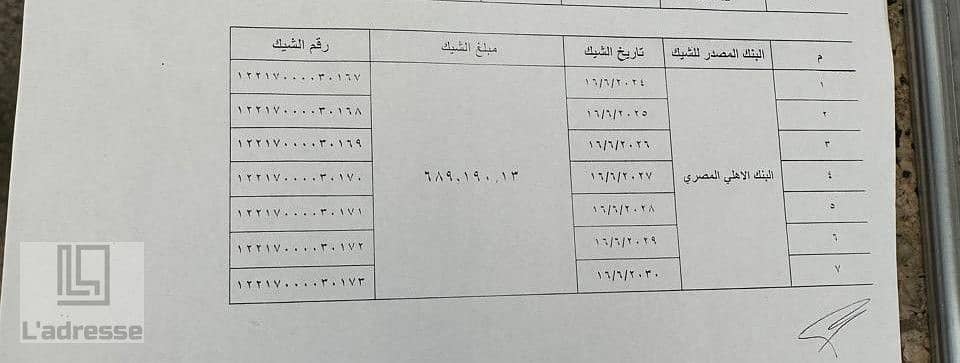 م البنك المصدر للشيك تاريخ الشيك مبلغ الشيك رقم الشيك
١ البنك الاهلي المصري ١٦/٦/٢٠٢٤ ٦٨٩,١٩٠.١٣ ١٢٢١٧٠٠٠٠٣٠١٦٧
٢ ١٦/٦/٢٠٢٥ ١٢٢١٧٠٠٠٠٣٠١٦٨
٣ ١٦/٦/٢٠٢٦ ١٢٢١٧٠٠٠٠٣٠١٦٩
٤ ١٦/٦/٢٠٢٧ ١٢٢١٧٠٠٠٠٣٠١٧٠
٥ ١٦/٦/٢٠٢٨ ١٢٢١٧٠٠٠٠٣٠١٧١
٦ ١٦/٦/٢٠٢٩ ١٢٢١٧٠٠٠٠٣٠١٧٢
٧ ١٦/٦/٢٠٣٠ ١٢٢١٧٠٠٠٠٣٠١٧٣
L'adresse